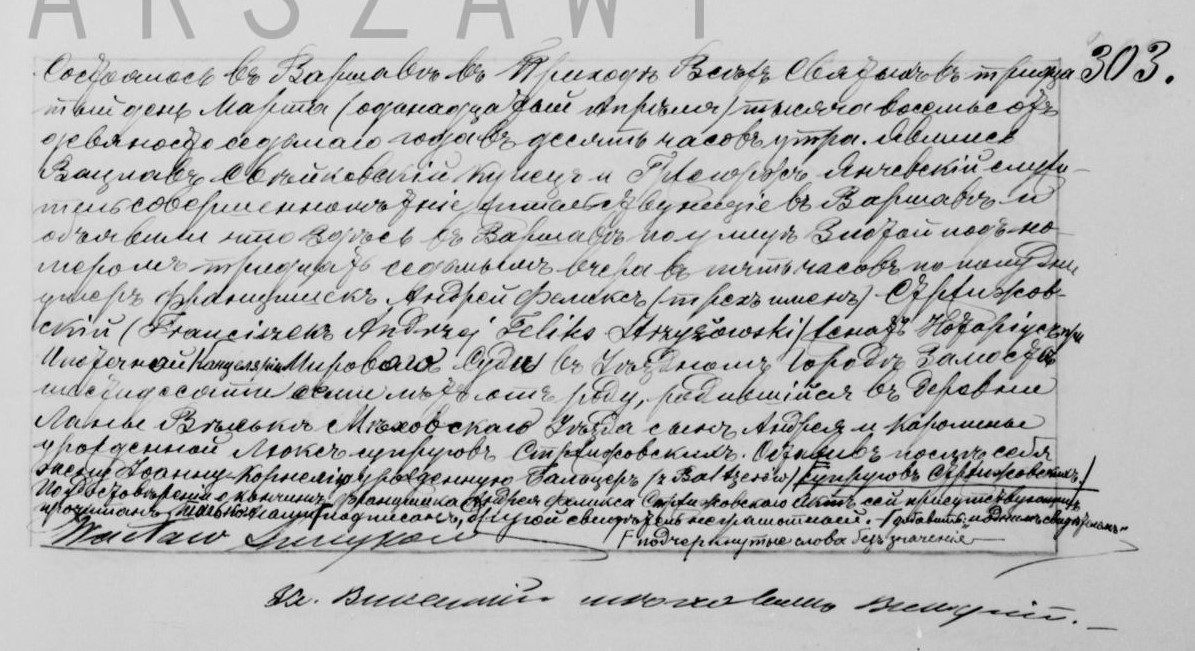 ARSZAWY
303.
Состоялось въ Варшавѣ въ Приходѣ Всѣхъ Святыхъ въ тридца
тый день Марта (одинадцатый Апрѣля) тысяча восемьсотъ
девяносто седьмаго года въ десять часовъ утра. Явились
Вацлавъ Свѣйковскій купецъ и Янчевскій служи-
тель совершеннолѣтніе жительствующіе въ Варшавѣ и
объявили что здѣсь въ Варшавѣ по улицѣ Злотой подъ но-
меромъ тридцать седьмымъ вчера въ пять часовъ по полудни
умеръ Францишекъ Андрей Феликсъ (трехъ именъ) Стржижов-
скій (Franciszek Andrzej Feliks Strzyżowski) женатъ Нотаріусъ при
Ипотечной Канцеляріи Мироваго Судьи въ Уѣздномъ Городѣ Замостьѣ
шестидесяти семи лѣтъ отъ роду, родившійся въ деревни
Мѣховскаго Уѣзда сынъ Андрея и Каролины
урожденной Люксъ супруговъ Стржижовскихъ. Оставивъ послѣ себя
жену Іоанну Корнелію урожденную Бальцеръ (z Baltzerów) супруговъ Стржижовскихъ.
По удостовѣреніи о кончинѣ Францишка Андрея Феликса Стржижовскаго Актъ сей присутствующимъ
прочитанъ, только нами подписанъ, другой свидѣтель неграмотный. (добавить: и однимъ свидѣтелемъ"
подчеркнутые слова безъ значенія
Wacław